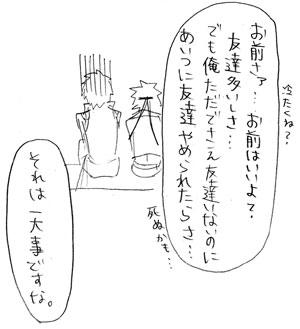 冷たくね?
お前さァ…お前はいいよ?
友達多いしさ…
でも俺ただでさえ友達いないのに
あいつに友達やめられたらさ…
死ぬかも…
それは一大事ですな。